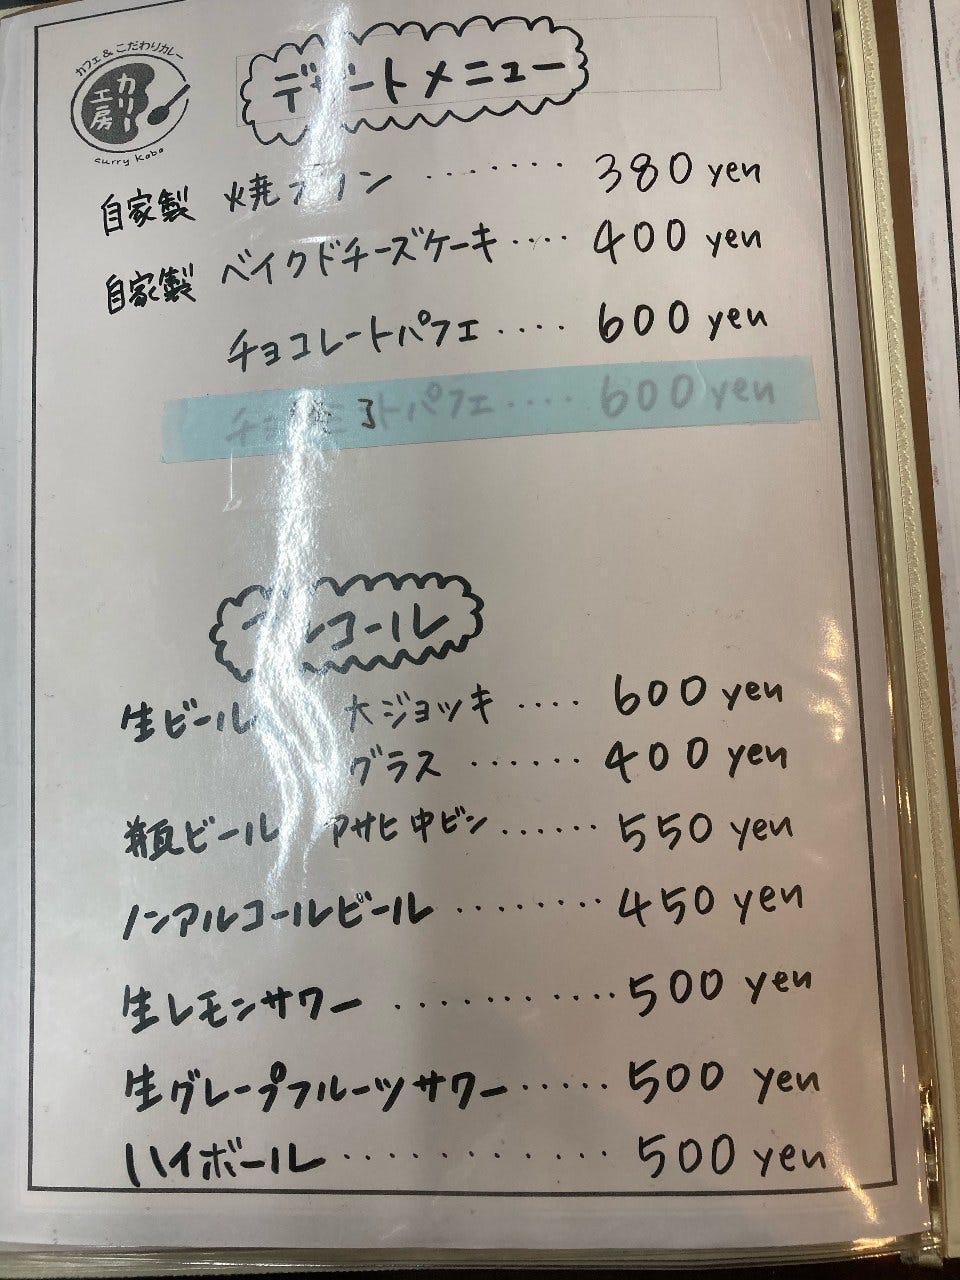 カフェ&こだわりカレー
カリー
工房
curry Kobo
デザートメニュー
自家製 焼プリン ‥‥‥ 380 yen
自家製 ベイクドチーズケーキ ‥‥ 400 yen
チョコレートパフェ ‥‥ 600 yen
トパフェ ‥‥ 600 yen
アルコール
生ビール 大ジョッキ ‥‥ 600 yen
グラス ‥‥‥ 400 yen
瓶ビール アサヒ中ビン ‥‥‥ 550 yen
ノンアルコールビール ‥‥‥‥ 450 yen
生レモンサワー ‥‥‥‥‥‥ 500 yen
生グレープフルーツサワー ‥‥‥ 500 yen
ハイボール ‥‥‥‥‥‥ 500 yen